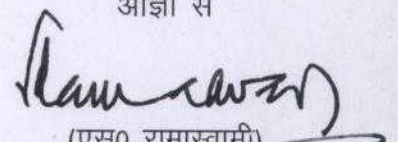 आज्ञा से
(एस0 रामास्वामी)